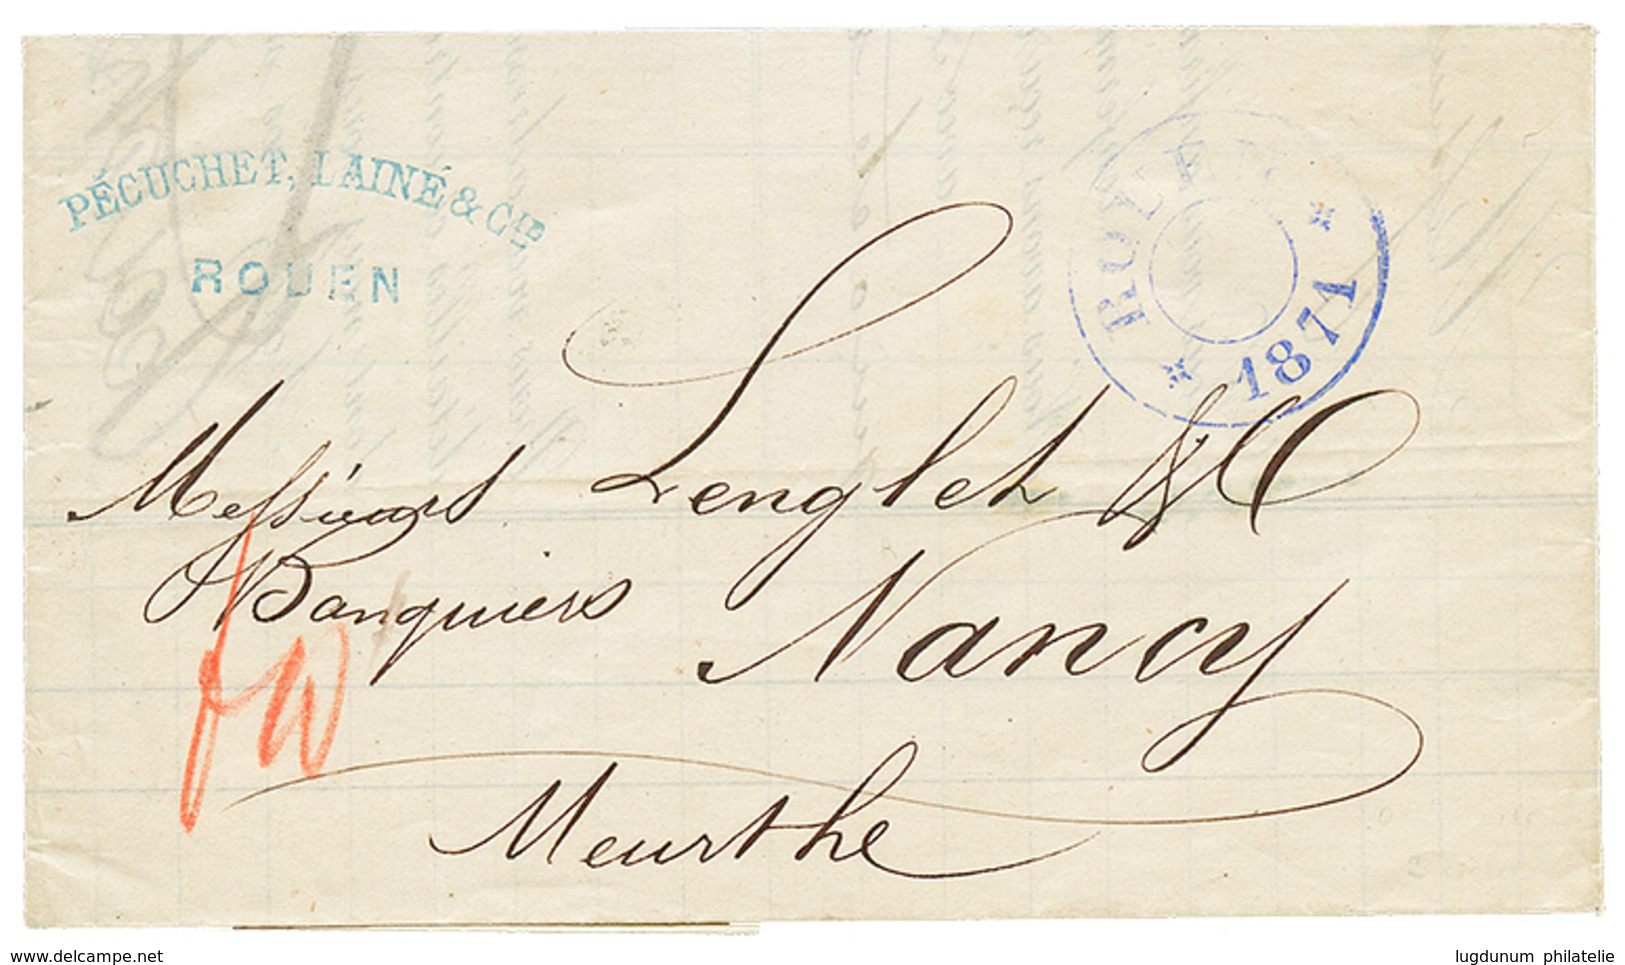 PÉCUCHET, LAINÉ & CIE
ROUEN
ROUEN
1871
Messieurs Lenglet & C
Banquiers Nancy
Meurthe
www.delcampe.net
lugdunum philatelie